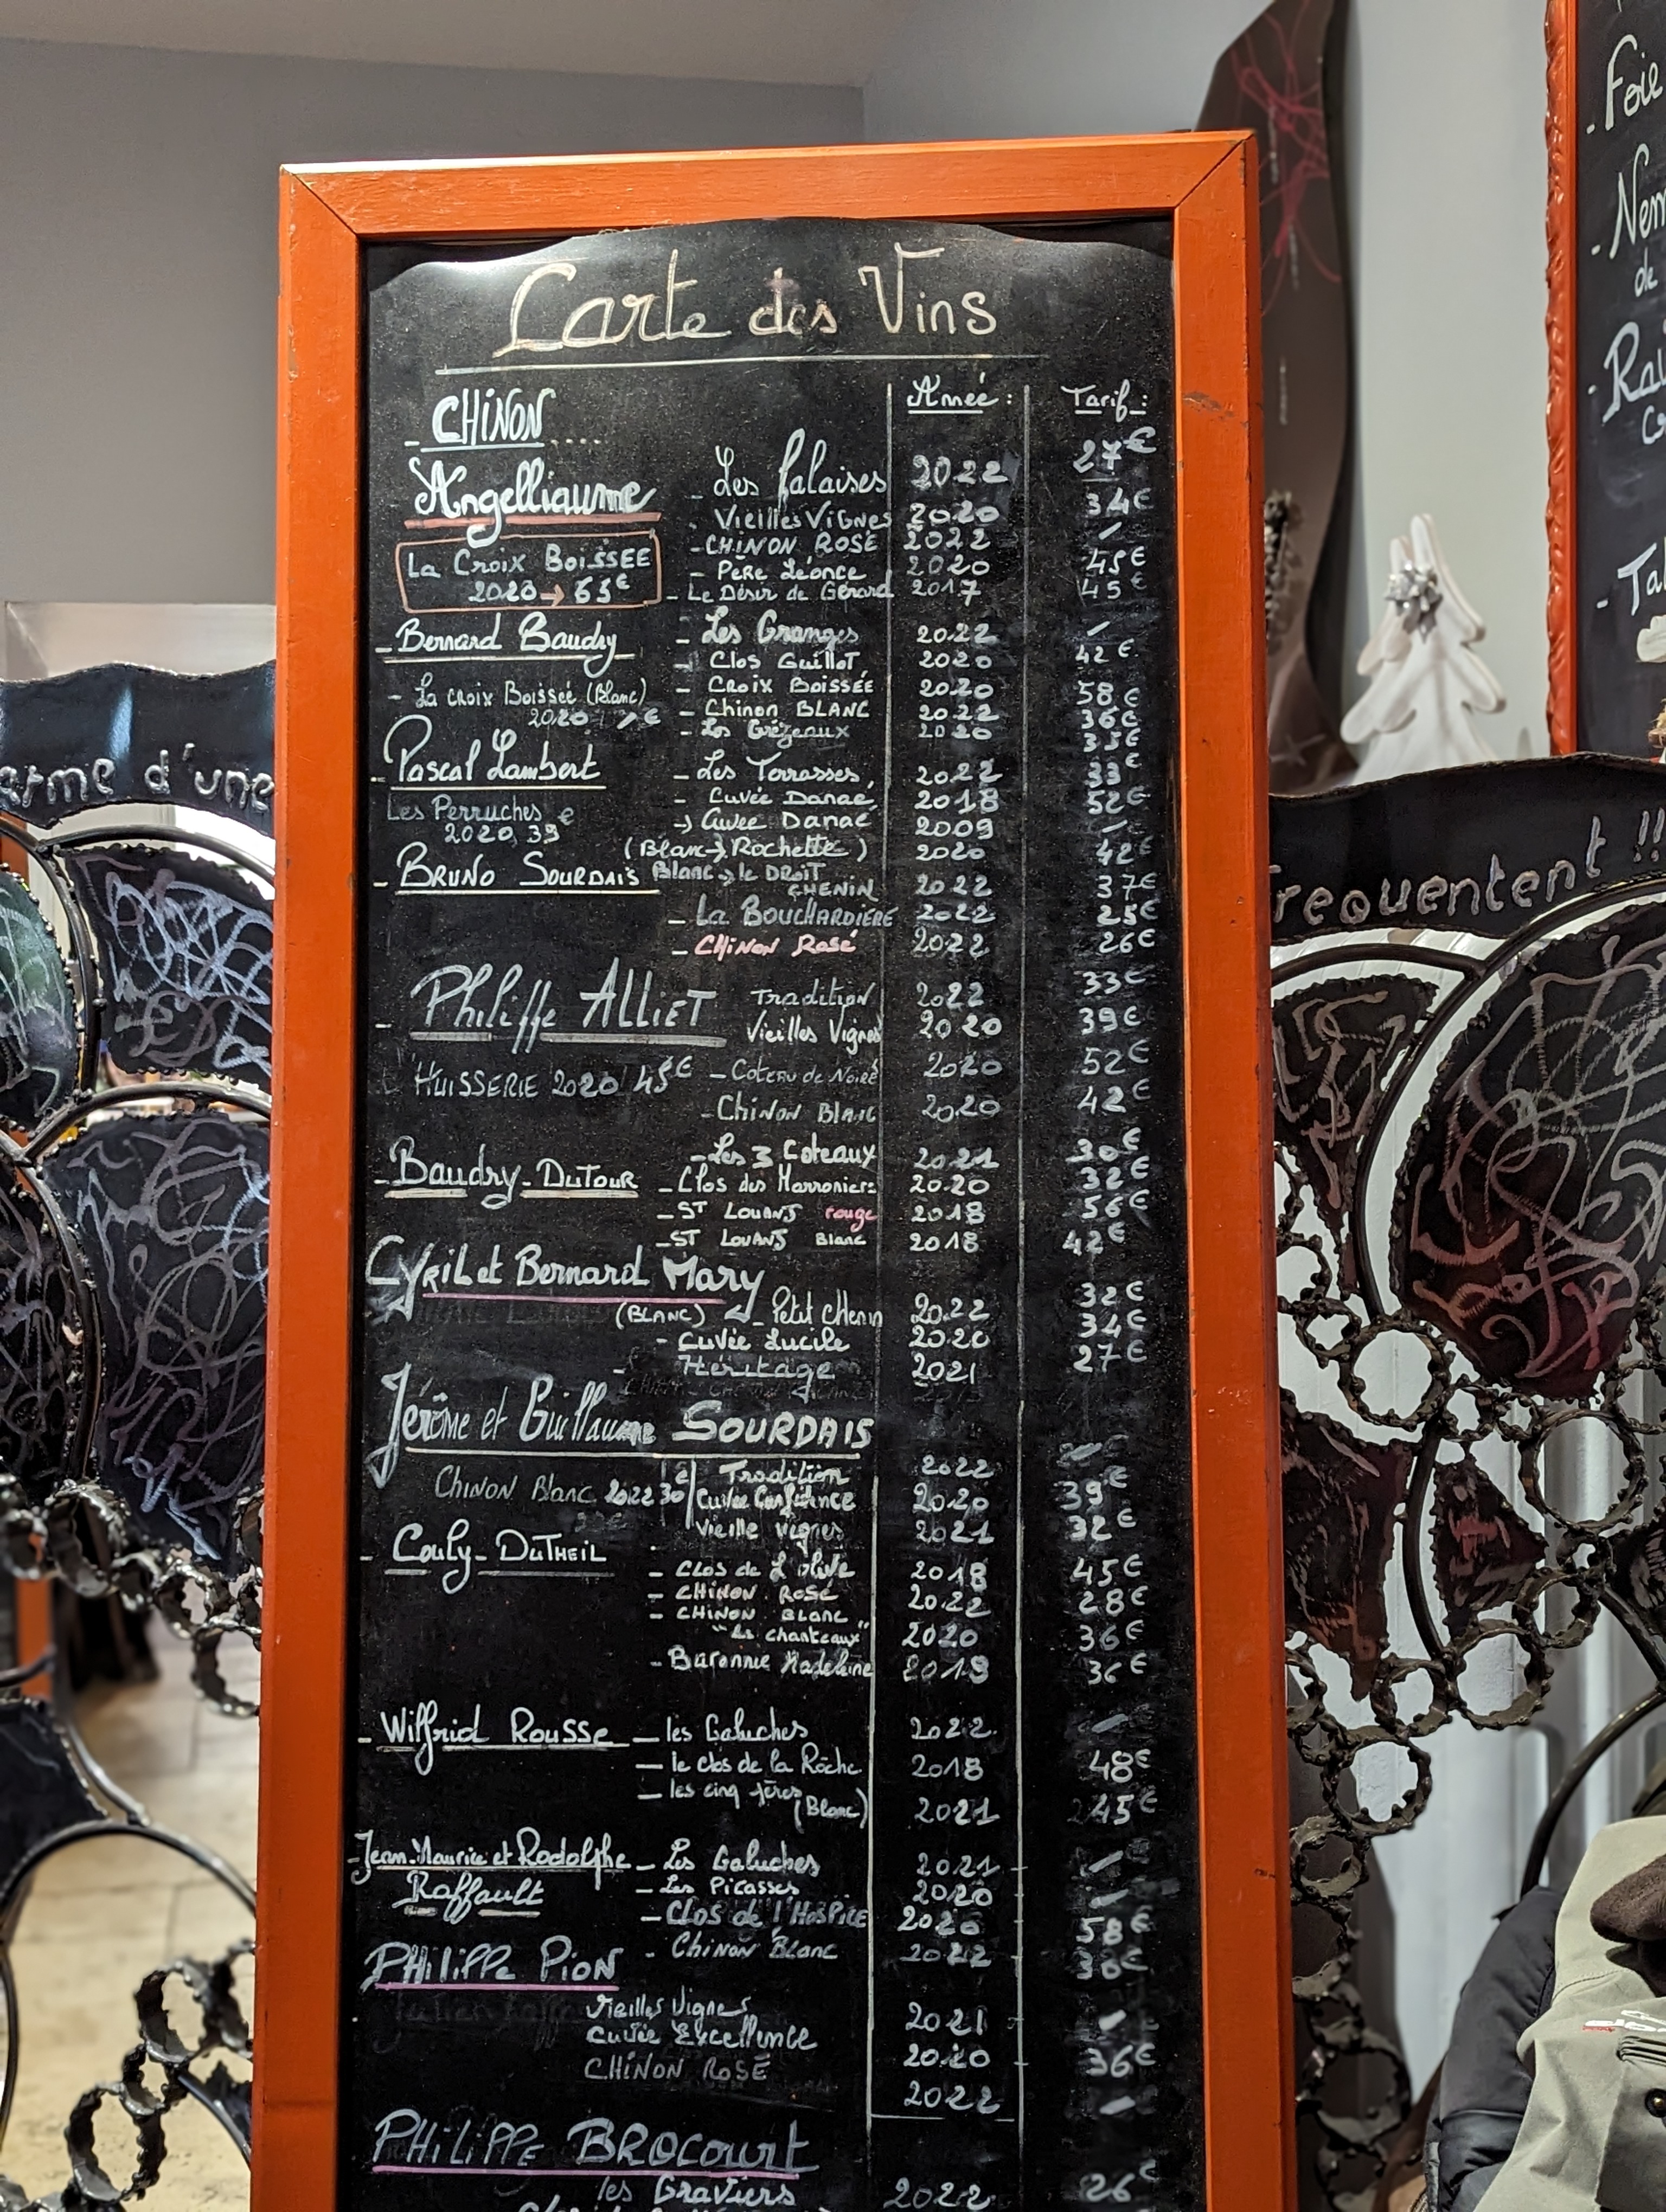 Carte des Vins
- CHINON .... Année : Tarif :
Angelliaume - Les Falaises 2022 27€
- Vieilles Vignes 2020 34€
- CHINON ROSÉ 2022 /
La Croix BOISSEE - Père Léonce 2020 45€
- Le Désir de Gérard 2017 45€
- Bernard Baudry - Les Granges 2022 /
- Clos Guillot 2020 42€
- La croix Boissée (Blanc) - Croix Boissée 2020 58€
2020 - Chinon BLANC 2022 36€
- Les Grézeaux 2020 35€
- Pascal Lambert - Les Terrasses 2022 33€
Les Perruches - Cuvée Danaé 2018 52€
2020, 39 € → Cuvée Danaé 2009 /
(Blanc → Rochette) 2020 42€
- BRUNO SOURDAIS Blanc → le DROIT
CHENIN 2022 37€
- La BOUCHARDIERE 2022 25€
- CHINON Rosé 2022 26€
- Philippe ALLIET Tradition 2022 33€
Vieilles Vignes 2020 39€
L'HUISSERIE 2020 45€ - Coteau de Noiré 2020 52€
- Chinon Blanc 2020 42€
- Baudry-DUTOUR - Les 3 Coteaux 2021 30€
- Clos des Marroniers 2020 32€
- ST LOUANS rouge 2018 56€
- ST LOUANS Blanc 2018 42€
CYRIL et Bernard Mary
(BLANC) - Petit chenin 2022 32€
- Cuvée Lucile 2020 34€
- Héritage 2021 27€
Jérôme et Guillaume SOURDAIS
Tradition 2022
CHINON Blanc 2022 30€ Cuvée Confidence 2020 39€
Vieille vignes 2021 32€
- Couly-DUTHEIL
- CLOS de L'Olive 2018 45€
- CHINON ROSÉ 2022 28€
- CHINON BLANC
"Les chanteaux" 2020 36€
- Baronnie Madeleine 2018 36€
- Wilfrid Rousse - les Galuches 2022 /
- le clos de la Roche 2018 48€
- les cinq frères
(Blanc) 2021 45€
- Jean-Maurice et Rodolphe - Les Galuches 2021 /
Raffault - Les Picasses 2020 /
- CLOS de l'HOSPICE 2020 58€
- Chinon Blanc 2022
PHILIPPE PION
Vieilles Vignes 2021 /
Cuvée Excellence 2020 36€
CHINON ROSÉ 2022 /
PHILIPPE BROCOURT
les Graviers 2022 26€
d'une
frequentent !!
- Foie
- Nem
de
- Rav